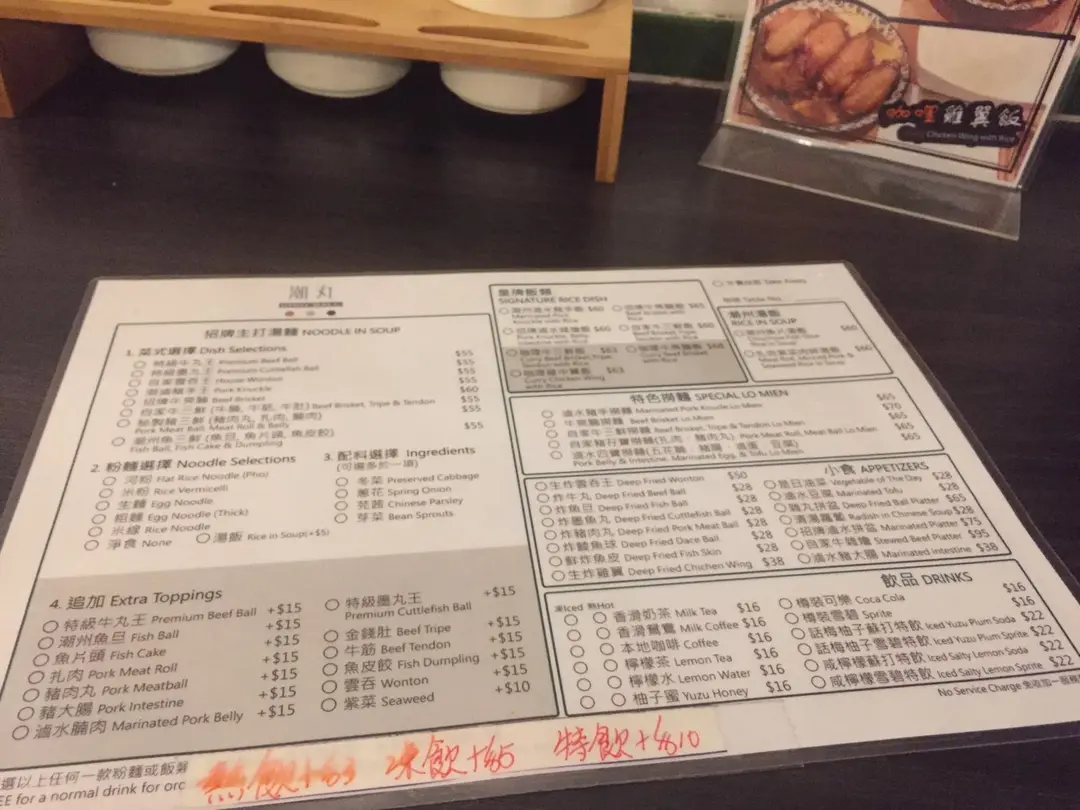 咖喱雞翼飯
Chicken Wing with Rice
潮丸
招牌主打湯麵 NOODLE IN SOUP
1. 菜式選擇 Dish Selections
特級牛丸王 Premium Beef Ball $55
特級墨丸王 Premium Cuttlefish Ball $55
自家雲吞王 House Wonton $55
潮滷豬手王 Pork Knuckle $55
招牌牛筞腩 Beef Brisket $60
自家牛三鮮 (牛腩, 牛筋, 牛肚) Beef Brisket, Tripe & Tendon $55
秘製豬三鮮 (豬肉丸, 扎肉, 腩肉)
Pork Meat Ball, Meat Roll & Belly
潮州魚三鮮 (魚旦, 魚片頭, 魚皮餃) $55
Fish Ball, Fish Cake & Dumpling
2. 粉麵選擇 Noodle Selections
河粉 Flat Rice Noodle (Pho)
米粉 Rice Vermicelli
生麵 Egg Noodle
粗麵 Egg Noodle (Thick)
米線 Rice Noodle
淨食 None
湯飯 Rice in Soup(+$5)
3. 配料選擇 Ingredients
(可選多於一項)
冬菜 Preserved Cabbage
蔥花 Spring Onion
芫茜 Chinese Parsley
芽菜 Bean Sprouts
4. 追加 Extra Toppings
特級牛丸王 Premium Beef Ball +$15
潮州魚旦 Fish Ball +$15
魚片頭 Fish Cake +$15
扎肉 Pork Meat Roll +$15
豬肉丸 Pork Meatball +$15
豬大腸 Pork Intestine +$15
滷水腩肉 Marinated Pork Belly +$15
特級墨丸王 +$15
Premium Cuttlefish Ball
金錢肚 Beef Tripe +$15
牛筋 Beef Tendon +$15
魚皮餃 Fish Dumpling +$15
雲吞 Wonton +$15
紫菜 Seaweed +$10
皇牌飯類
SIGNATURE RICE DISH
潮州滷水豬手飯 $60
Marinated Pork
Knuckle with Rice
招牌滷水豬雜飯 $60
Pork Knuckle, Belly
招牌牛筞腩飯 $65
Beef Brisket with
Rice
自家牛三鮮飯 $60
Beef Brisket, Tripe
Tendon with Rice
咖喱牛三鮮飯 $63
Curry Beef Brisket, Tripe
Tendon with Rice
咖喱牛筞腩飯 $68
Curry Beef Brisket
with Rice
咖喱雞中翼飯 $63
Curry Chicken Wing
with Rice
外賣自取 Take Away
檯號 Table No.
潮州湯飯
RICE IN SOUP
潮州魚片湯飯 $60
扎肉肉碎紫菜湯飯 $60
Meat Roll, Minced Pork &
Seaweed Rice in Soup
特色撈麵 SPECIAL LO MIEN
滷水豬手撈麵 Marinated Pork Knuckle Lo Mien $65
牛筞腩撈麵 Beef Brisket Lo Mien $70
自家牛三鮮撈麵 Beef Brisket, Tripe & Tendon Lo Mien $65
自家豬孖寶撈麵(扎肉 豬肉丸) Pork Meat Roll, Meat Ball Lo Mien $65
滷水四寶撈麵(五花腩 豬腸 滷蛋 豆腐) $65
Pork Belly & Intestine, Marinated Egg, & Tofu Lo Mien
小食 APPETIZERS
生炸雲吞王 Deep Fried Wonton $50
炸牛丸 Deep Fried Beef Ball $28
炸魚旦 Deep Fried Fish Ball $28
炸墨魚丸 Deep Fried Cuttlefish Ball $28
炸豬肉丸 Deep Fried Pork Meat Ball $28
炸鯪魚球 Deep Fried Dace Ball $28
鮮炸魚皮 Deep Fried Fish Skin $28
生炸雞翼 Deep Fried Chichen Wing $38
是日油菜 Vegetable of The Day $28
滷水豆腐 Marinated Tofu $28
雜丸拼盆 Deep Fried Ball Platter $65
清湯蘿蔔 Radish in Chinese Soup $28
招牌滷水拼盆 Marinated Platter $75
自家牛雜煲 Stewed Beef Platter $95
滷水豬大腸 Marinated intestine $38
飲品 DRINKS
凍Iced 熱Hot
香滑奶茶 Milk Tea $16
香滑鴛鴦 Milk Coffee $16
本地咖啡 Coffee $16
檸檬茶 Lemon Tea $16
檸檬水 Lemon Water $16
柚子蜜 Yuzu Honey $16
樽裝可樂 Coca Cola $16
樽裝雪碧 Sprite $16
話梅柚子蘇打特飲 Iced Yuzu Plum Soda $22
話梅柚子雪碧特飲 Iced Yuzu Plum Sprite $22
咸檸檬蘇打特飲 Iced Salty Lemon Soda $22
咸檸檬雪碧特飲 Iced Salty Lemon Sprite $22
No Service Charge 免收加一服務
選以上任何一款粉麵或飯類
EE for a normal drink for orc
熱飲+$3 凍飲+$5 特飲+$10